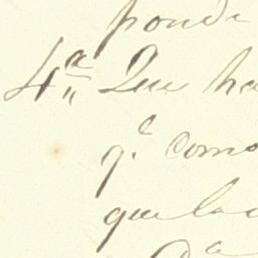 ponde
4ª Que ha
q.e como
que la